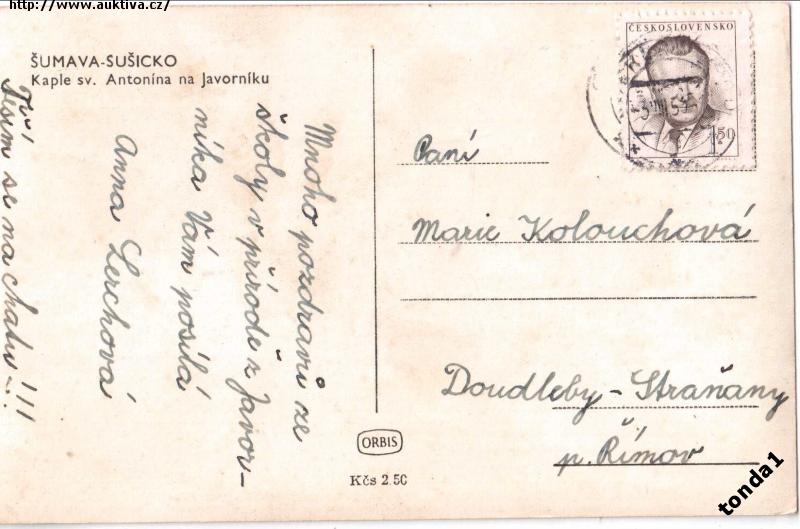 http://www.auktiva.cz/
ŠUMAVA-SUŠICKO
Kaple sv. Antonína na Javorníku
Mnoho pozdravů ze
školy v přírodě z Javor-
níka Vám posílá
Anna Lerchová
Těším se na chatu !!!
ČESKOSLOVENSKO
1.50
Paní
Marie Kolouchová
Doudleby-Straňany
p. Římov
ORBIS
Kčs 2.50
tonda1